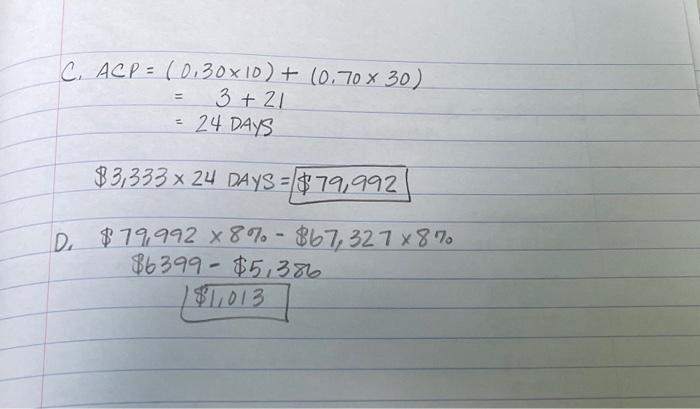 C. ACP = (0.30 x 10) + (0.70 x 30)
= 3 + 21
= 24 DAYS
$3,333 x 24 DAYS = $79,992
D. $79,992 x 8% - $67,327 x 8%
$6399 - $5,386
$1,013